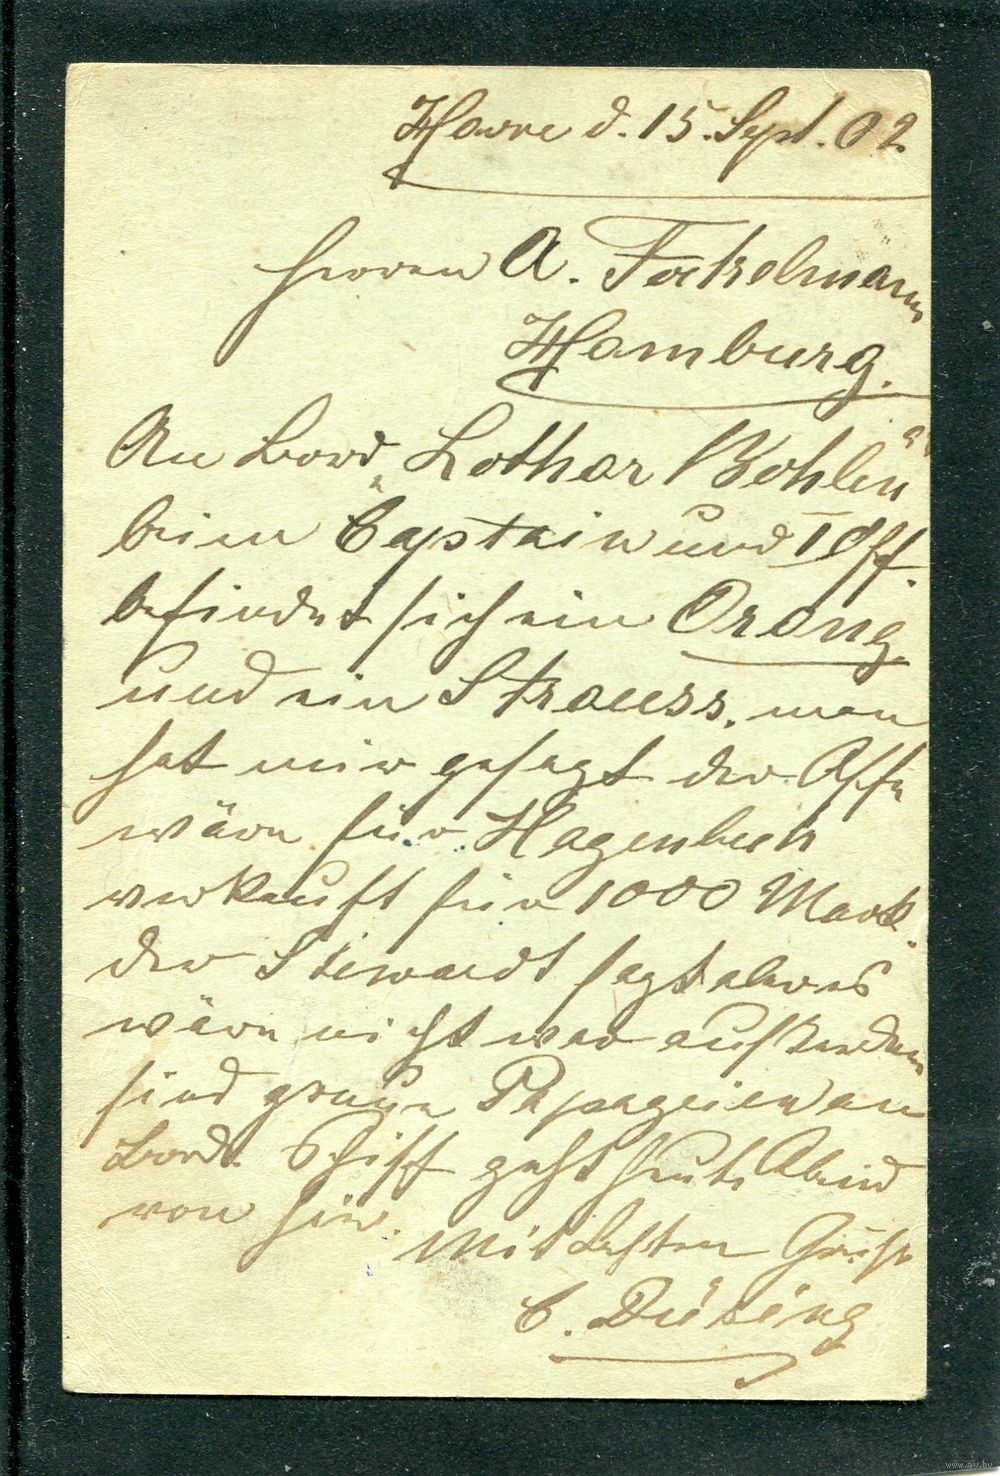 Havre d. 15. Sept. 02.
Herren A. Fockelmann
Hamburg.
An Bord „Lothar Bohlen"
beim Captain und I Off.
befindet sich ein Orang
und ein Strauss. man
hat mir gesagt der Affe
wäre für Hagenbeck
verkauft für 1000 Mark.
der Stewardt sagt aber es
wäre nicht war außerdem
sind graue Papageien an
Bord. Schiff geht heute Abend
von hier. Mit besten Grüße
C. Düsing
www.ay.by